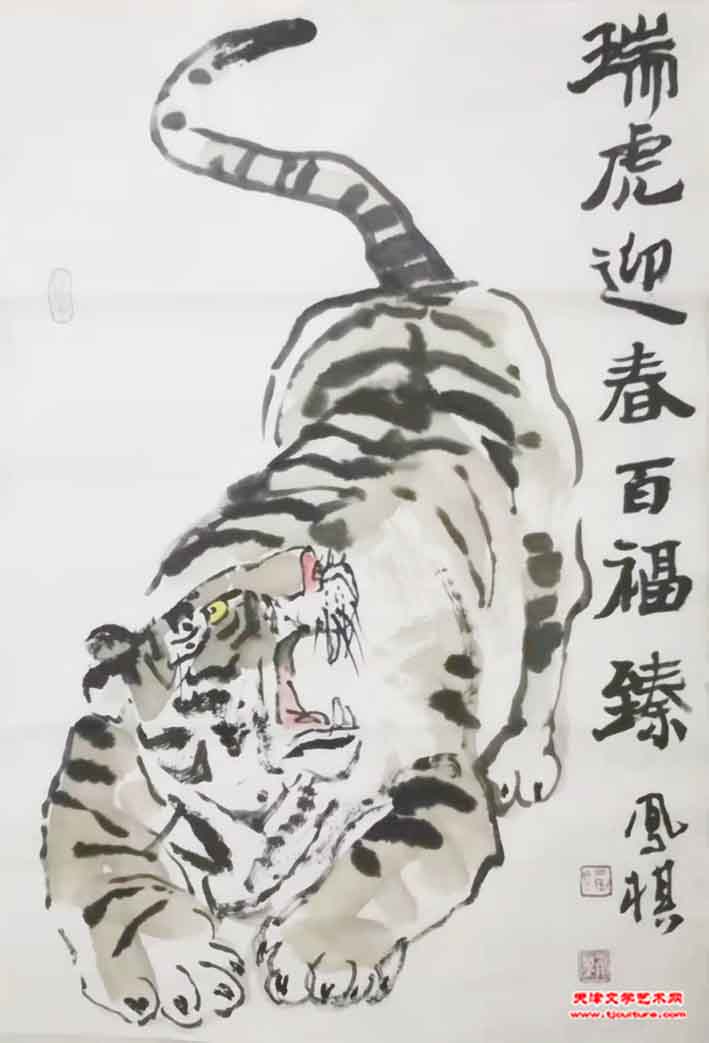 瑞虎迎春百福臻
鳳棋
天津文学艺术网
www.tjculture.com